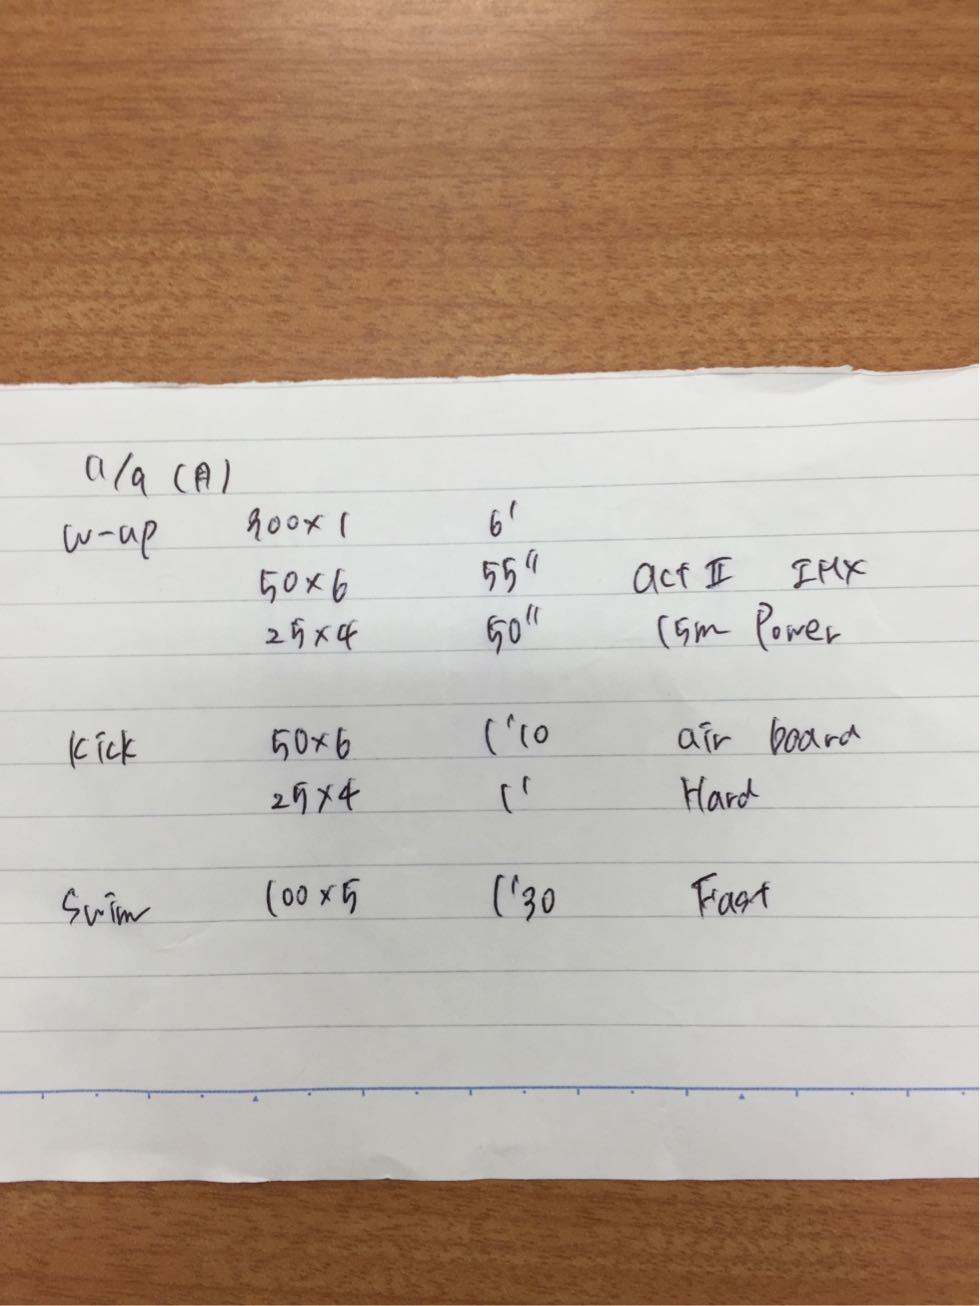 9/9 (A)
W-up 200×1 6'
50×6 55" act Ⅱ IMX
25×4 50" 15m Power
Kick 50×6 1'10 air board
25×4 1' Hard
Swim 100×5 1'30 Fast